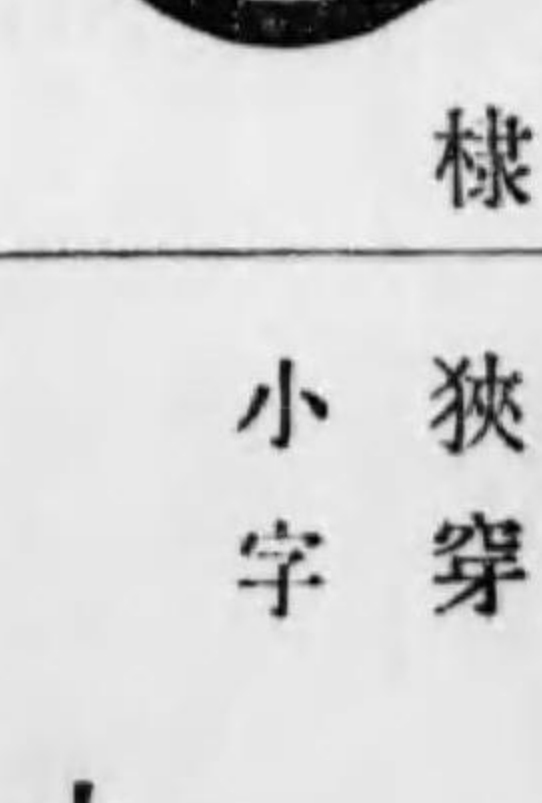 棣
狹穿
小字